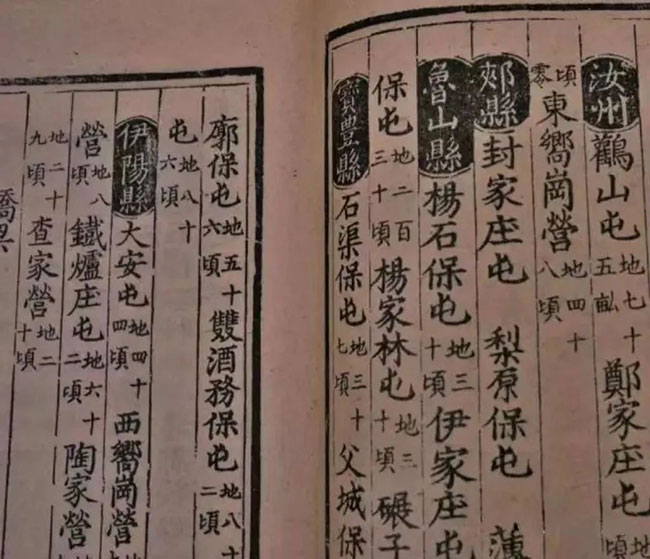 汝州鸛山屯地七十五畝鄭家庄屯
頃零東嚮崗營地四十八頃
郟縣封家庄屯 梨原保屯 薄
魯山縣楊石保屯地三十頃伊家庄屯
保屯地二百三十頃楊家林屯地三十頃碾子
寳豊縣石渠保屯地三十七頃父城保
廓保屯地五十六頃雙酒務保屯地八十二頃
屯地八十六頃
伊陽縣大安屯地四十四頃西嚮崗營
營地八頃鐵爐庄屯地六十二頃陶家營
地二十九頃查家營地二十頃
橋